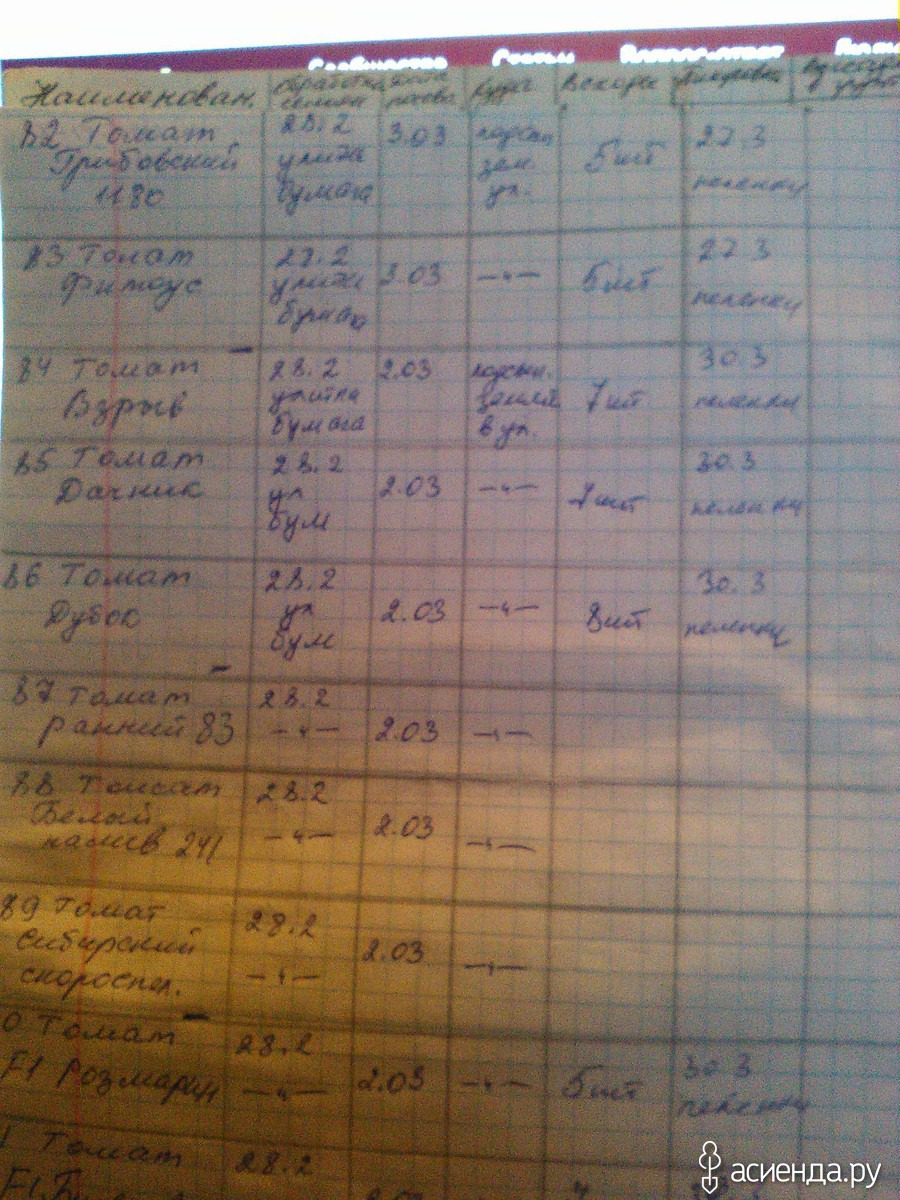 Наименован. обработка семян посева куда Всходы
82 Томат Грибовский 1180 28.2 улитка бумага 3.03 зем. ул. 5 шт 27.3 пеленки
83 Томат 28.2 улитка бумага 2.03 —"— 5 шт 27.3 пеленки
84 Томат Взрыв 28.2 улитка бумага 2.03 в ул. 7 шт 30.3 пеленки
85 Томат Дачник 28.2 ул бум 2.03 —"— 7 шт 30.3 пеленки
86 Томат Дубок 28.2 ул бум 2.03 —"— 8 шт 30.3 пеленки
87 Томат ранний 83 28.2 —"— 2.03 —"—
88 Томат Белый налив 241 28.2 —"— 2.03 —"—
89 Томат Сибирский скороспел. 28.2 —"— 2.03 —"—
0 Томат F1 Розмарин 28.2 —"— 2.03 —"— 5 шт 30.3 пеленки
Томат 28.2
F1
асиенда.ру